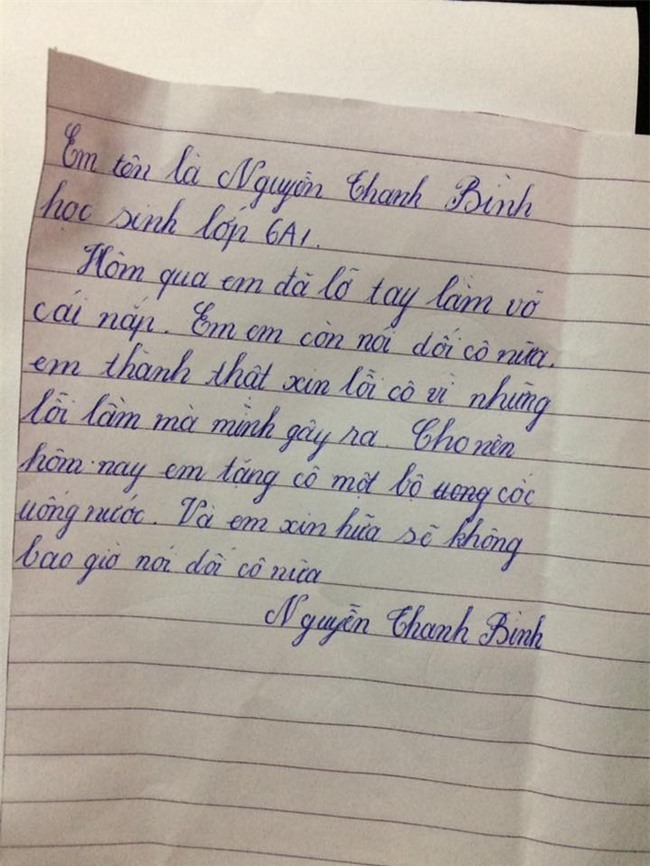 Em tên là Nguyễn Thanh Bình
học sinh lớp 6A1.
Hôm qua em đã lỡ tay làm vỡ
cái nắp. Em em còn nói dối cô nữa.
em thành thật xin lỗi cô vì những
lỗi lầm mà mình gây ra. Cho nên
hôm nay em tặng cô một bộ uong cốc
uống nước. Và em xin hứa sẽ không
bao giờ nói dối cô nữa
Nguyễn Thanh Bình